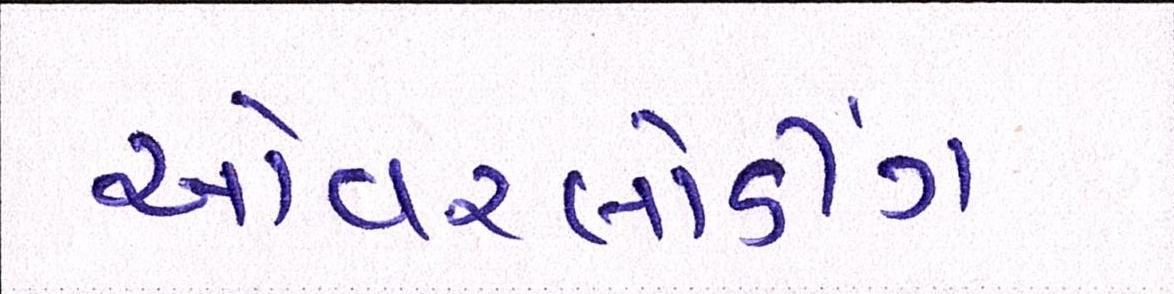 ઓવરલોડીંગ